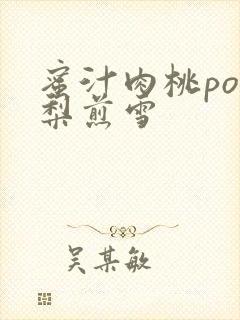 蜜汁肉桃po
梨煎雪
吴某敏